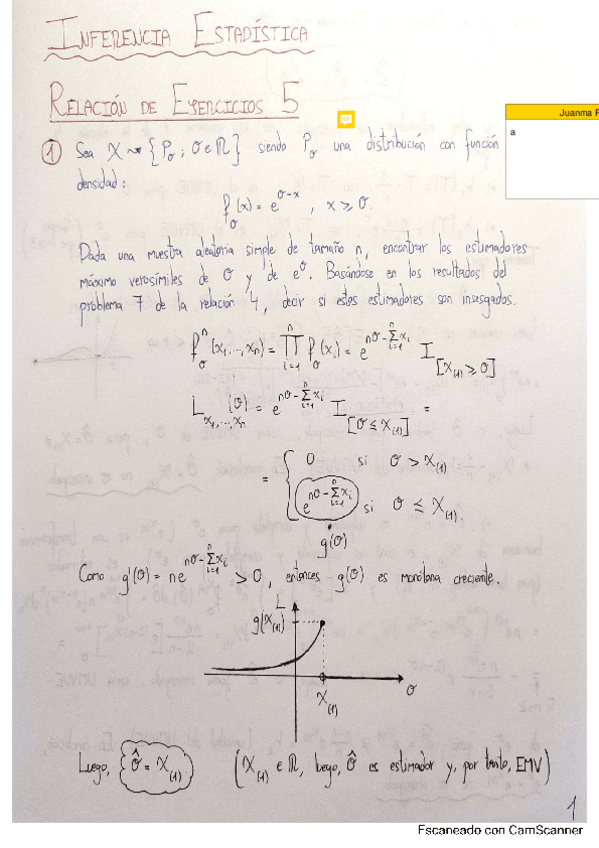 INFERENCIA ESTADÍSTICA
RELACIÓN DE EJERCICIOS 5
Juanma F
a
① Sea X ⇝ {P_σ ; σ ∈ ℝ} siendo P_σ una distribución con función
densidad:
f_σ(x) = e^(σ-x) , x ≥ σ.
Dada una muestra aleatoria simple de tamaño n, encontrar los estimadores
máximo verosímiles de σ y de e^σ. Basándose en los resultados del
problema 7 de la relación 4, decir si estos estimadores son insesgados.
f^n_σ(x_1, ..., x_n) = ∏_{i=1}^n f_σ(x_i) = e^(nσ - ∑_{i=1}^n x_i) I_[X_(1) ≥ σ]
L_{x_1, ..., x_n}(σ) = e^(nσ - ∑_{i=1}^n x_i) I_[σ ≤ X_(1)] =
= { 0 si σ > X_(1)
e^(nσ - ∑_{i=1}^n x_i) si σ ≤ X_(1).
g(σ)
Como g'(σ) = n e^(nσ - ∑_{i=1}^n x_i) > 0, entonces g(σ) es monótona creciente.
L
g(X_(1))
X_(1)
σ
Luego, σ̂ = X_(1) (X_(1) ∈ ℝ, luego, σ̂ es estimador y, por tanto, EMV)
1
Escaneado con CamScanner